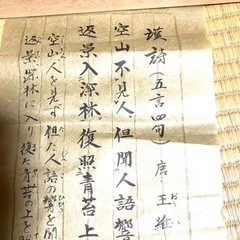 漢詩(五言四句) 唐・王維
空山不見人。但聞人語響
返景入深林。復照青苔上
空山人を見ず 但た人語の響を聞
返景深林に入り 復た青苔の上を照